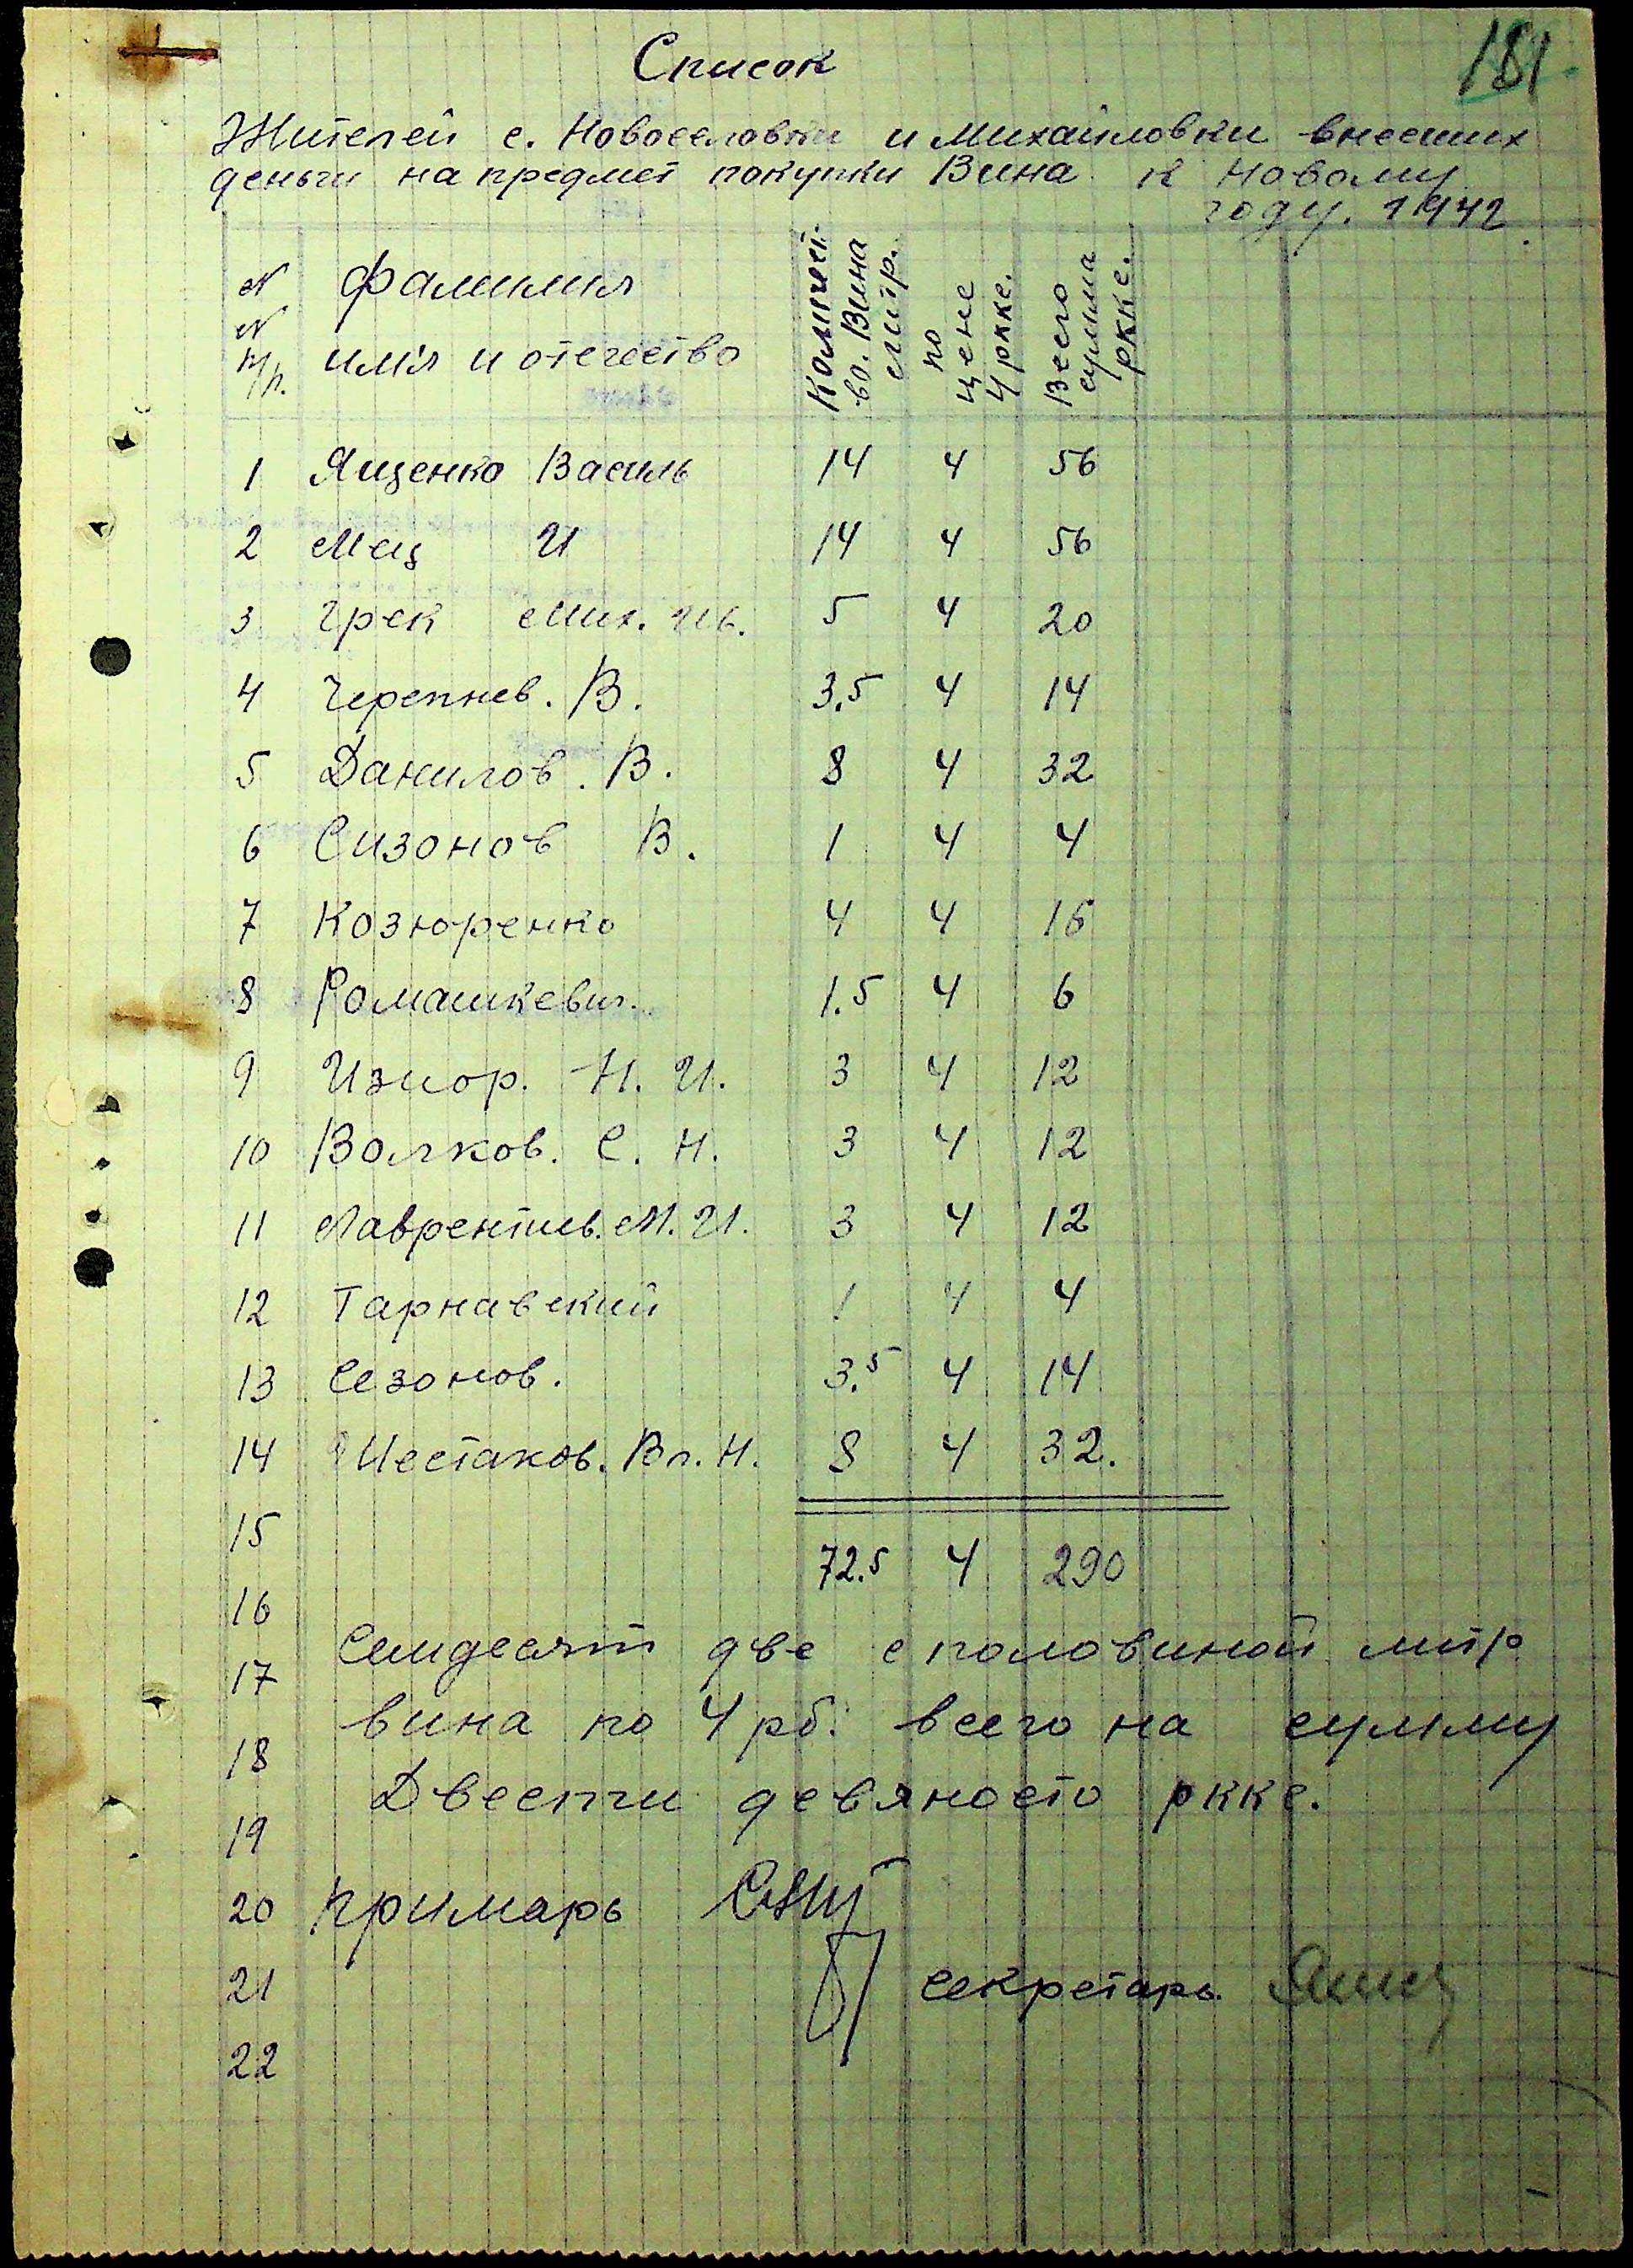 181
Список
Жителей с. Новоселовки и Михайловки внесших
деньги на предмет покупки Вина к Новому
году. 1942
N N п/п. Фамилия имя и отечество Количест-во. Вина литр. по цене 4 ркке. Всего сумма ркке.
1 Ященко Василь 14 4 56
2 Мец И 14 4 56
3 Грек Мих. Ив. 5 4 20
4 Черепнев. В. 3.5 4 14
5 Данилов. В. 8 4 32
6 Сизонов В. 1 4 4
7 Козюренко 4 4 16
8 Ромашкевич. 1.5 4 6
9 Н. И. 3 4 12
10 Волков. С. Н. 3 4 12
11 Лаврентьев. М. И. 3 4 12
12 Тарнавский 1 4 4
13 Сезонов. 3.5 4 14
14 Шестаков. Вл. Н. 8 4 32.
15
72.5 4 290
16
Семдесят две с половиной литр
17
вина по 4 рб. всего на сумму
18
Двести девяносто ркке.
19
20 Примарь
21 Секретарь
22